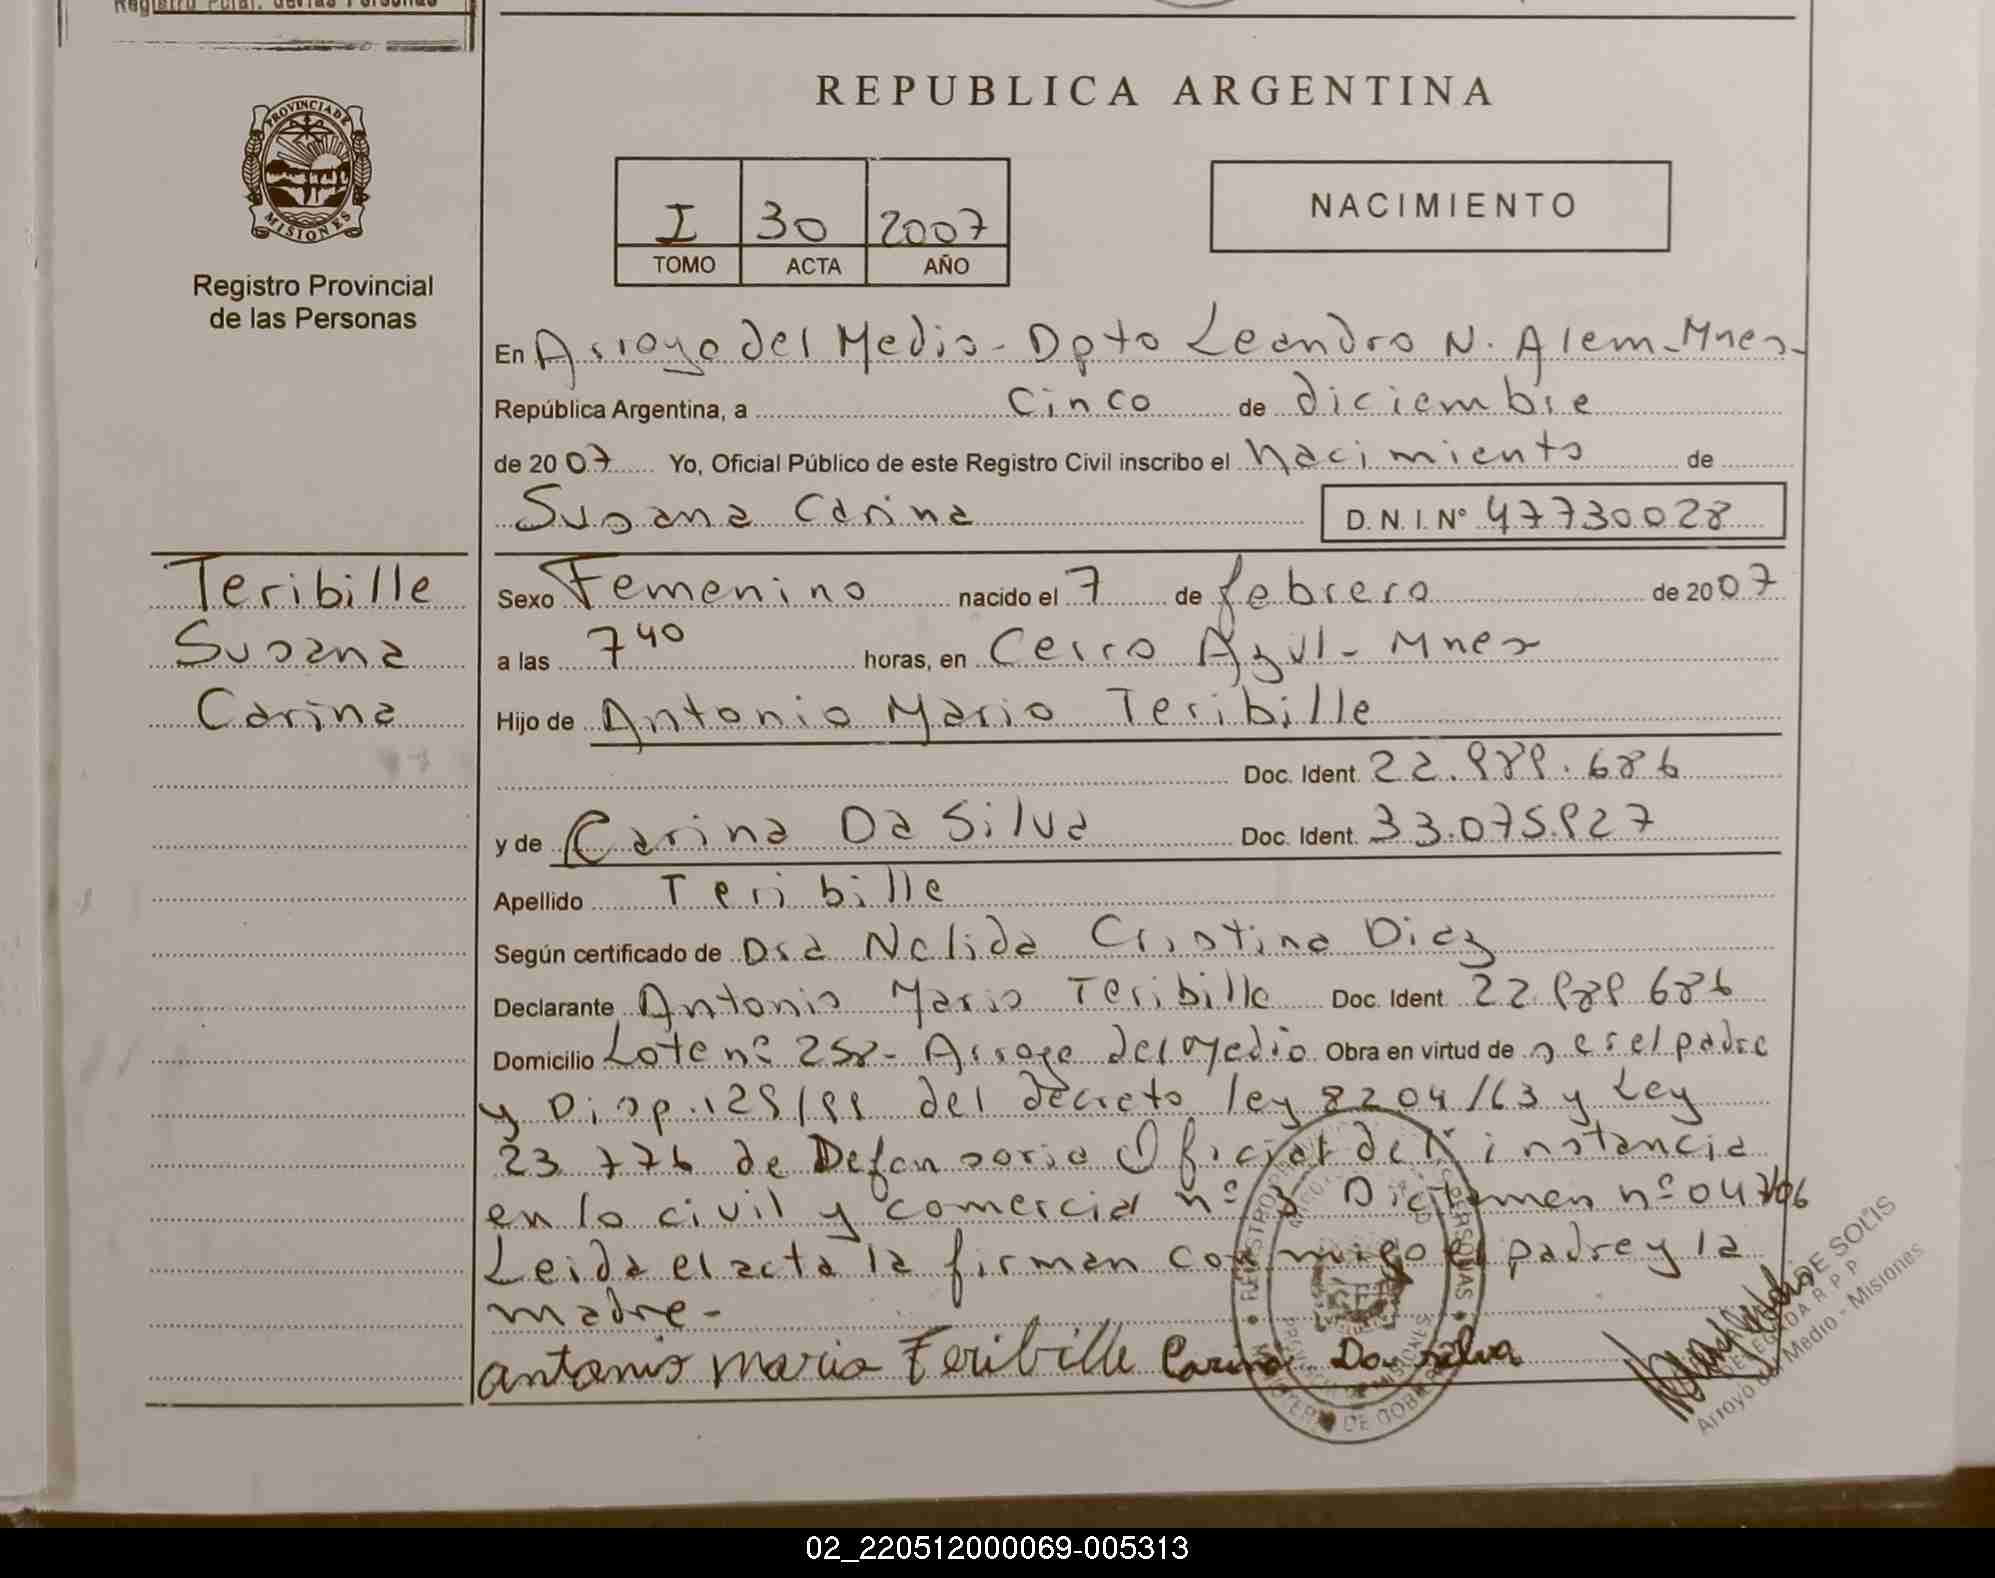 PROVINCIA DE
MISIONES
Registro Provincial
de las Personas
REPUBLICA ARGENTINA
I 30 2007
TOMO ACTA AÑO
NACIMIENTO
En Arroyo del Medio - Dpto Leandro N. Alem - Mnes -
República Argentina, a cinco de diciembre
de 2007 Yo, Oficial Público de este Registro Civil inscribo el Nacimiento de
Susana Carina D. N. I. Nº 47730028
Teribille
Susana
Carina
Sexo Femenino nacido el 7 de febrero de 2007
a las 7 40 horas, en Cerro Azul - Mnes
Hijo de Antonio Mario Teribille
Doc. Ident. 22.989.686
y de Carina Da Silva Doc. Ident. 33.075.927
Apellido Teribille
Según certificado de Dra Nelida Cristina Diaz
Declarante Antonio Mario Teribille Doc. Ident. 22.989 686
Domicilio Lote nº 258 - Arroyo del Medio Obra en virtud de ser el padre
y Disp. 129/99 del decreto ley 8204/63 y Ley
23 776 de Defensoria Oficial de 1º instancia
en lo civil y comercial nº 3 Dictamen nº 047/06
Leida el acta la firman conmigo el padre y la
madre -
antonio mario Teribille Carina Da silva
DE SOLIS
DELEGADA R P P
Arroyo del Medio - Misiones
02_220512000069-005313